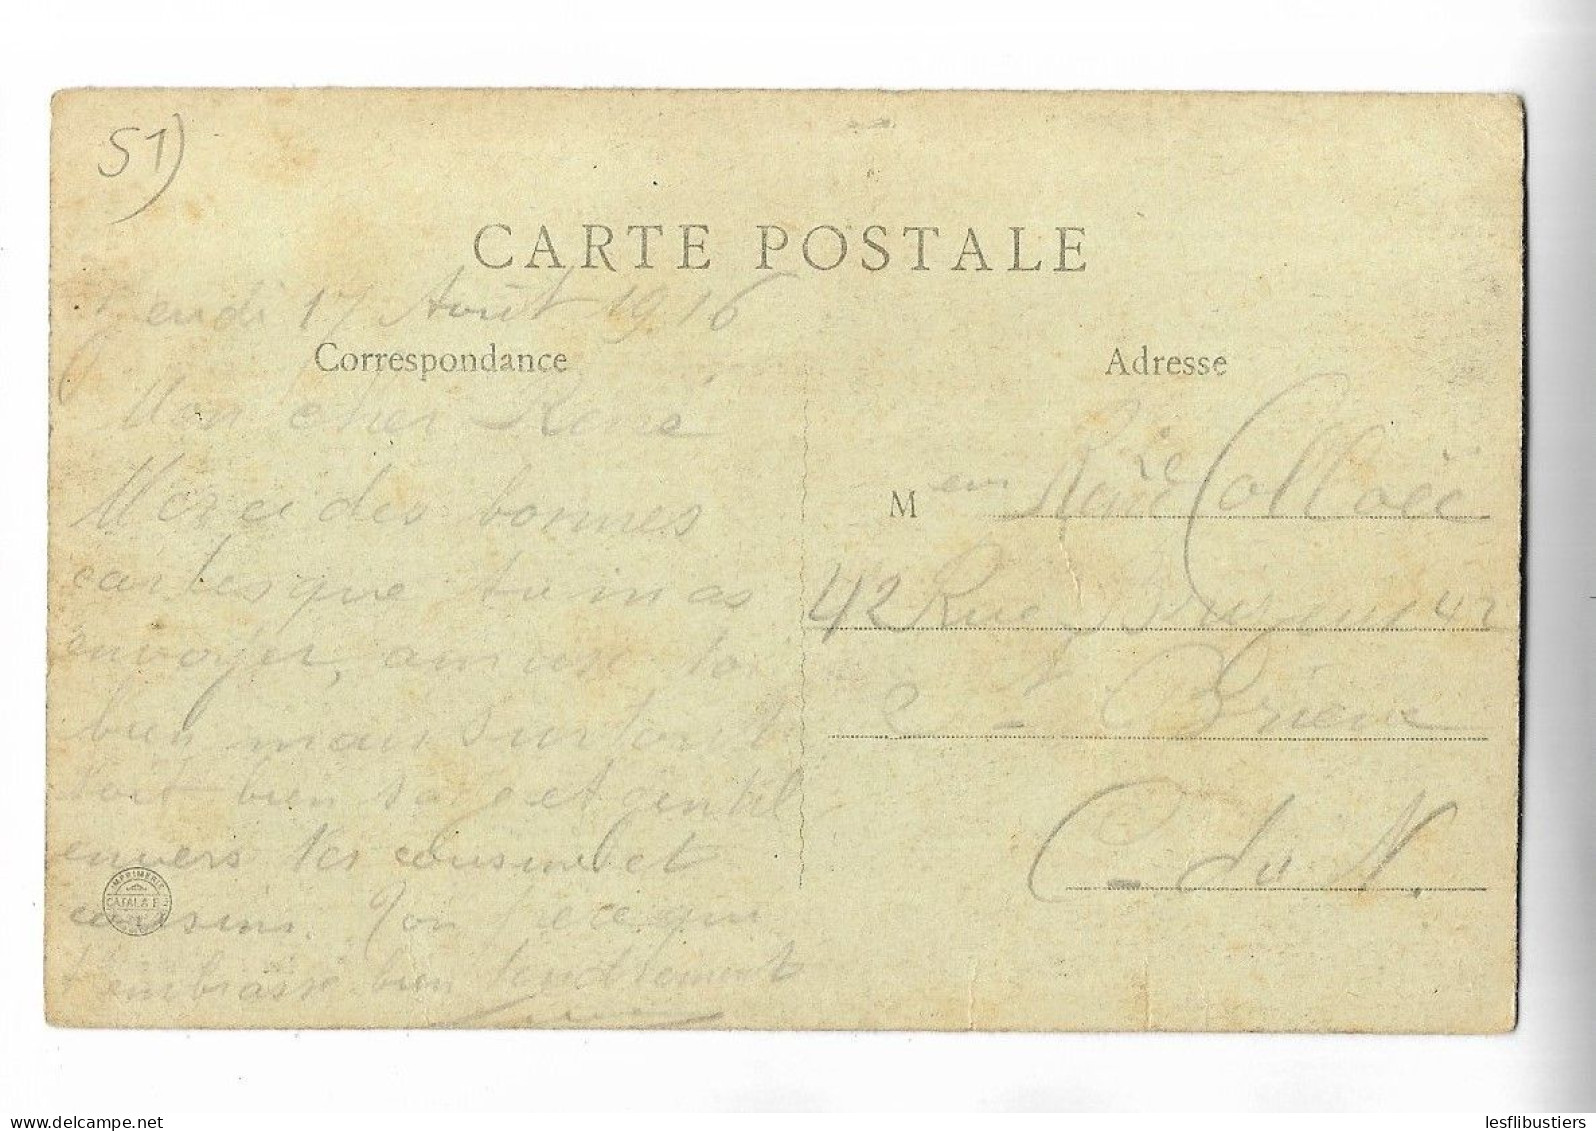 51)
CARTE POSTALE
Jeudi 17 Août 1916
Correspondance
Mon cher René
Merci des bonnes
cartes que tu m'as
envoyer, amuse toi
bien mais surtout
soit bien sage et gentil
envers tes cousines et
cousins. Ton qui
t'embrasse bien tendrement
Adresse
M René
42 Rue 42
St Brieuc
C du N.
IMPRIMERIE
CATALA F
lesflibustiers